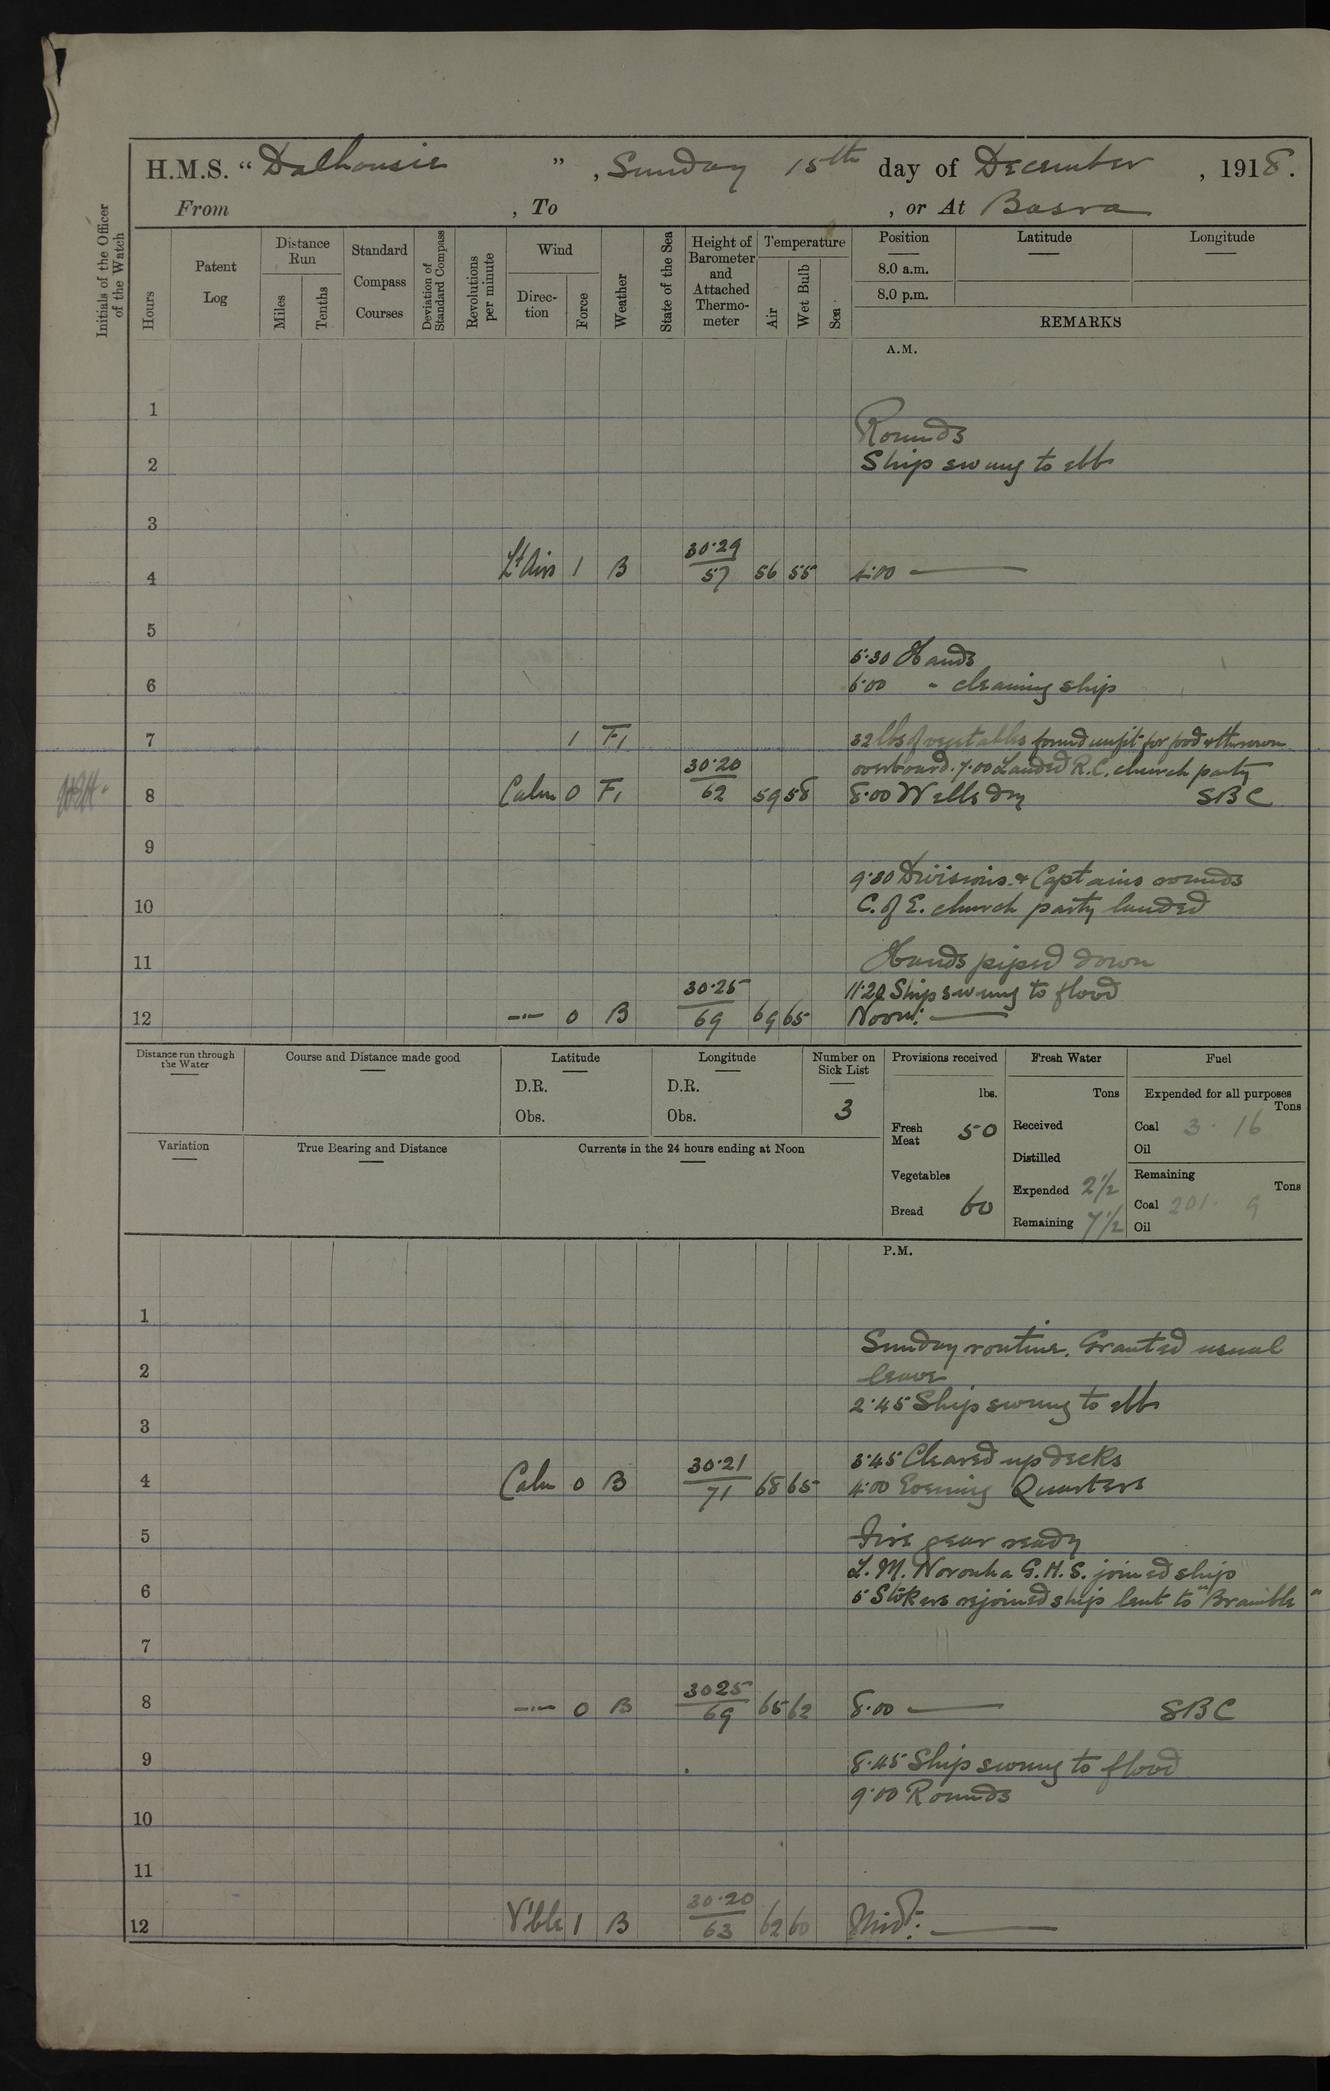 H.M.S. “ Dalhousie ” , Sunday 15th day of December , 1918.
From , To , or At Basra
Initials of the Officer of the Watch
Hours
Patent Log
Distance Run
Miles
Tenths
Standard Compass Courses
Deviation of Standard Compass
Revolutions per minute
Wind
Direc-tion
Force
Weather
State of the Sea
Height of Barometer and Attached Thermo-meter
Temperature
Air
Wet Bulb
Sea
Position Latitude Longitude
8.0 a.m.
8.0 p.m.
REMARKS
A.M.
1
Rounds
2 Ship swung to ebb
3
4 Lt Airs 1 B 30·29 57 56 55 4·00
5
5·30 Hands
6 6·00 " cleaning ship
7 1 F1 32 lbs of vegetables found unfit for food & thrown
overboard. 7·00 Landed R.C. church party
8 Calm 0 F1 30·20 62 59 58 8·00 Wells dry SBC
9
9·30 Divisions & Captains rounds
10 C. of E. church party landed
11 Hands piped down
11·20 Ship swung to flood
12 —"— 0 B 30·25 69 69 65 Noon:
Distance run through the Water
Course and Distance made good
Latitude
D.R.
Obs.
Longitude
D.R.
Obs.
Number on Sick List
3
Variation
True Bearing and Distance
Currents in the 24 hours ending at Noon
Provisions received
lbs.
Fresh Meat 50
Vegetables
Bread 60
Fresh Water
Tons
Received
Distilled
Expended 2½
Remaining 7½
Fuel
Expended for all purposes
Tons
Coal 3 · 16
Oil
Remaining
Tons
Coal 201 · 9
Oil
P.M.
1
Sunday routine. Granted usual
2 leave
2·45 Ship swung to ebb
3
3·45 Cleared up decks
4 Calm 0 B 30·21 71 68 65 4·00 Evening Quarters
5 Fire gear ready
L. M. Noronha G.H.S. joined ship
6 5 Stokers rejoined ship lent to "Bramble"
7
8 —"— 0 B 3025 69 65 62 8·00 SBC
9 8·45 Ship swung to flood
9·00 Rounds
10
11
12 V'ble 1 B 30·20 63 62 60 Midt: